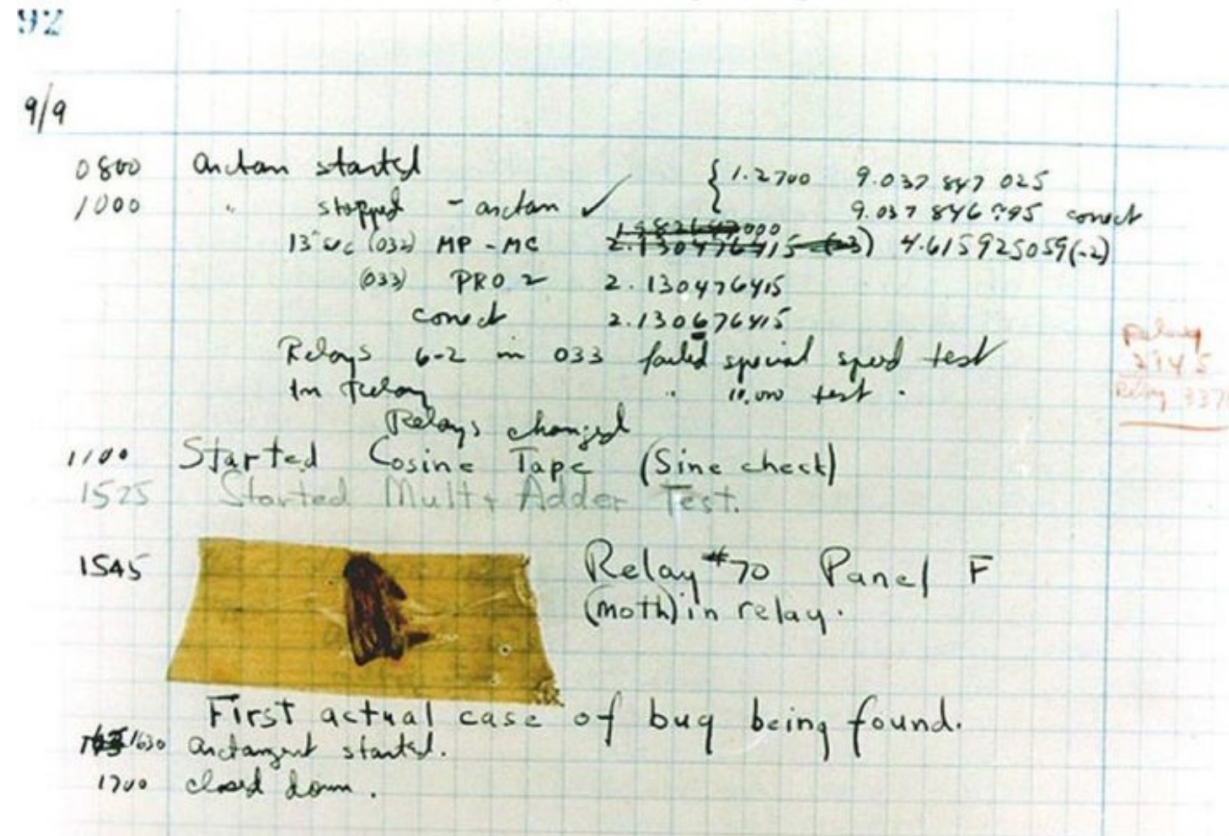 92
9/9
0800 arctan started { 1.2700 9.037 847 025
1000 " stopped - arctan ✓ 9.037 846 995 correct
13"uc (032) MP - MC 2.130476415 (-3) 4.615925059(-2)
(033) PRO 2 2.130476415
correct 2.130676415
Relays 6-2 in 033 failed special speed test
In Relay " 10,000 test .
Relay
Relays changed
1100 Started Cosine Tape (Sine check)
1525 Started Mult + Adder Test.
1545 Relay #70 Panel F
(moth) in relay.
First actual case of bug being found.
1630 arctangent started.
1700 closed down.